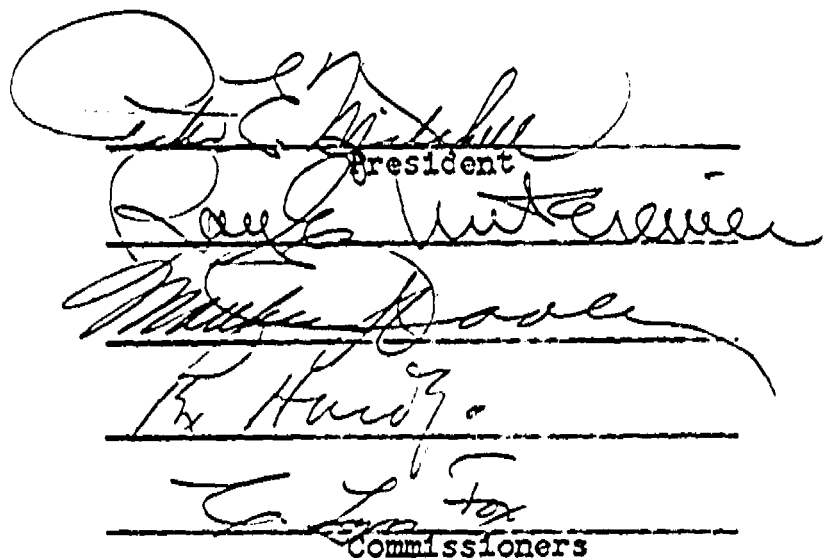 Peter E. Mitchell
President
Ray L. Untereiner
Matthew J. Dooley
Rex Hardy
C. Lyn Fox
Commissioners